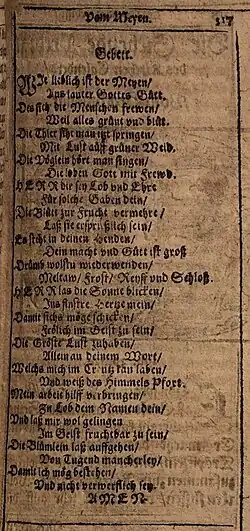 Vom Meyen. 317
Gebett.
Wie lieblich ist der Meyen/
Aus lauter Gottes Gütt.
Des sich die Menschen frewen/
Weil alles grünt vnd blüt.
Die Thier siht man itzt springen/
Mit Lust auff grüner Weid.
Die Vöglein hört man singen/
Die loben Gott mit Frewd.
HERR dir sey Lob vnd Ehre
Für solche Gaben dein/
Die Blüt zur Frucht vermehre/
Laß sie ersprießlich sein/
Es steht in deinen Henden/
Dein macht vnd Gütt ist groß
Drumb wolstu wiederwenden/
Meltaw/ Frost/ Reyff vnd Schloß.
HERR las die Sonne blicken/
Ins finstre Hertze mein/
Damit sichs möge schicken/
Frölich im Geist zu sein/
Die Gröste Lust zuhaben/
Allein an deinem Wort/
Welchs mich im Creutz kan laben/
Vnd weist des Himmels Pfort.
Mein arbeit hilff verbringen/
Zu Lob dem Namen dein/
Vnd laß mir wol gelingen
Im Geist fruchtbar zu sein/
Die Blümlein laß auffgehen/
Von Tugend mancherley/
Damit ich mög bestehen/
Vnd nicht verwerflich sey.
AMEN.